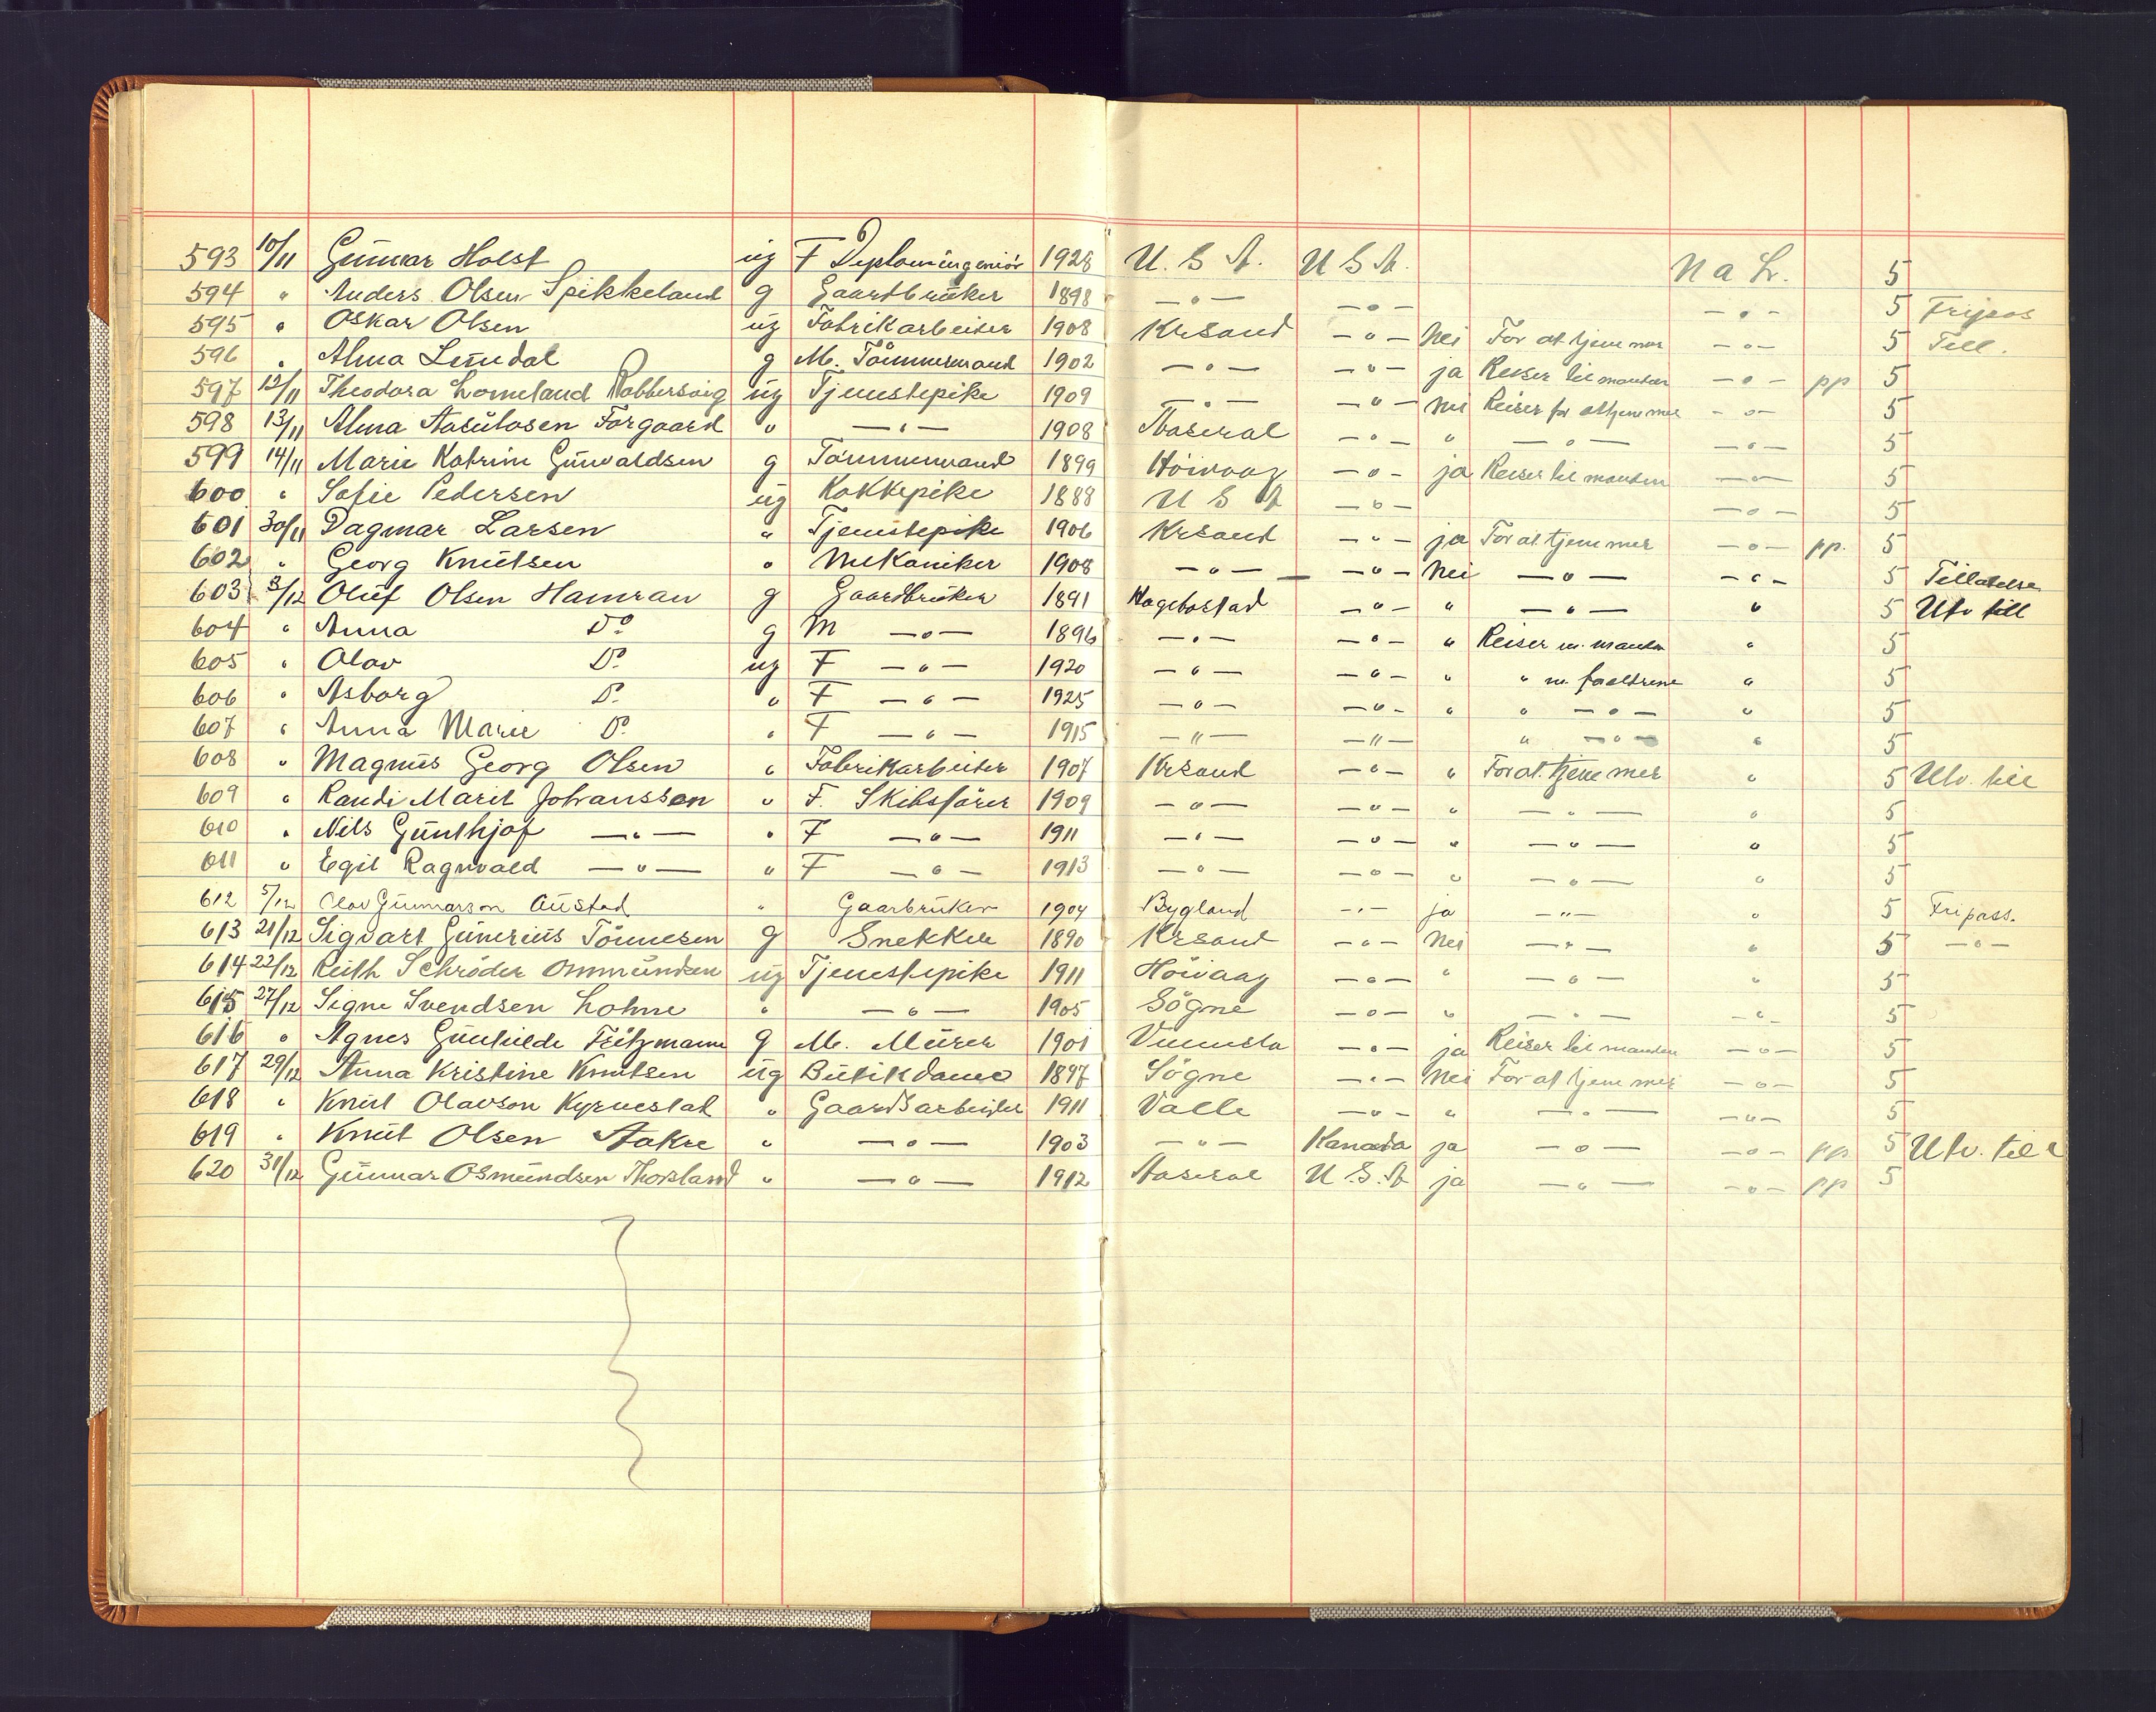 593 10/11 Gunnar Holst ug F Diplomingeniör 1928 U. S. A. U S A. N a L. 5
594 " Anders Olsen Spikkeland g Gaardbruker 1898 —"— —"— —"— 5 Fripas
595 " Oskar Olsen ug Fabrikarbeider 1908 Krsand —"— Nei For at tjene mer —"— 5 Till.
596 " Alma Lundal g M. Tömmermand 1902 —"— —"— ja Reiser til manden —"— pp 5
597 12/11 Theodora Lomeland Robbersvig ug Tjenestepike 1909 —"— —"— nei Reiser for at tjene mer —"— 5
598 13/11 Alma Aasulvsen Forgaard " —"— 1908 Aaseral —"— " —"— —"— 5
599 14/11 Marie Katrine Gunvaldsen g Tömmermand 1899 Höivaag —"— ja Reiser til manden —"— 5
600 " Sofie Pedersen ug Kokkepike 1888 U S A —"— —"— 5
601 30/11 Dagmar Larsen " Tjenestepike 1906 Krsand —"— ja For at tjene mer —"— pp. 5
602 " Georg Knutsen " Mekaniker 1908 —"— —"— Nei —"— —"— 5 Tillatelse
603 3/12 Oluf Olsen Hamran g Gaardbruker 1891 Hagebostad —"— " —"— " 5 Utv till
604 " Anna Do g M —"— 1896 —"— —"— " Reiser m. manden " 5
605 " Olav Do ug F —"— 1920 —"— —"— " " m. foreldrene " 5
606 " Asborg Do " F —"— 1925 —"— —"— " " —"— " 5
607 " Anna Marie Do " F —"— 1915 —"— —"— " —"— " 5
608 " Magnus Georg Olsen " Fabrikarbeider 1907 Krsand —"— " For at tjene mer " 5 Utv. till
609 " Randi Marit Johanssen " F. Skibsförer 1909 —"— —"— " —"— " 5
610 " Nils Gunthjof —"— " F —"— 1911 —"— —"— " —"— " 5
611 " Egil Ragnvald —"— " F —"— 1913 —"— —"— " —"— " 5
612 5/12 Olav Gunnarson Austad " Gaarbruker 1904 Bygland —"— ja —"— " 5 Fripass.
613 21/12 Sigvart Gunerius Tönnesen g Snekker 1890 Krsand —"— Nei —"— " 5 —"—
614 22/12 Ruth Schröder Ommundsen ug Tjenestepike 1911 Höivaag —"— " —"— " 5
615 27/12 Signe Svendsen Lohne " —"— 1905 Sögne —"— " —"— —"— 5
616 " Agnes Gunhilde Fritzmann g M. Murer 1901 Vennesla —"— ja Reiser til manden —"— 5
617 29/12 Anna Kristine Knutsen ug Butikdame 1897 Sögne —"— Nei For at tjene mer —"— 5
618 " Knut Olavson Kyrvestad " Gaardsarbeider 1911 Valle —"— " —"— —"— 5
619 " Knut Olsen Aakre " —"— 1903 —"— Kanada ja —"— —"— pp 5 Utv. till
620 31/12 Gunnar Osmundsen Thorsland " —"— 1912 Aaseral U. S. A ja —"— —"— pp 5